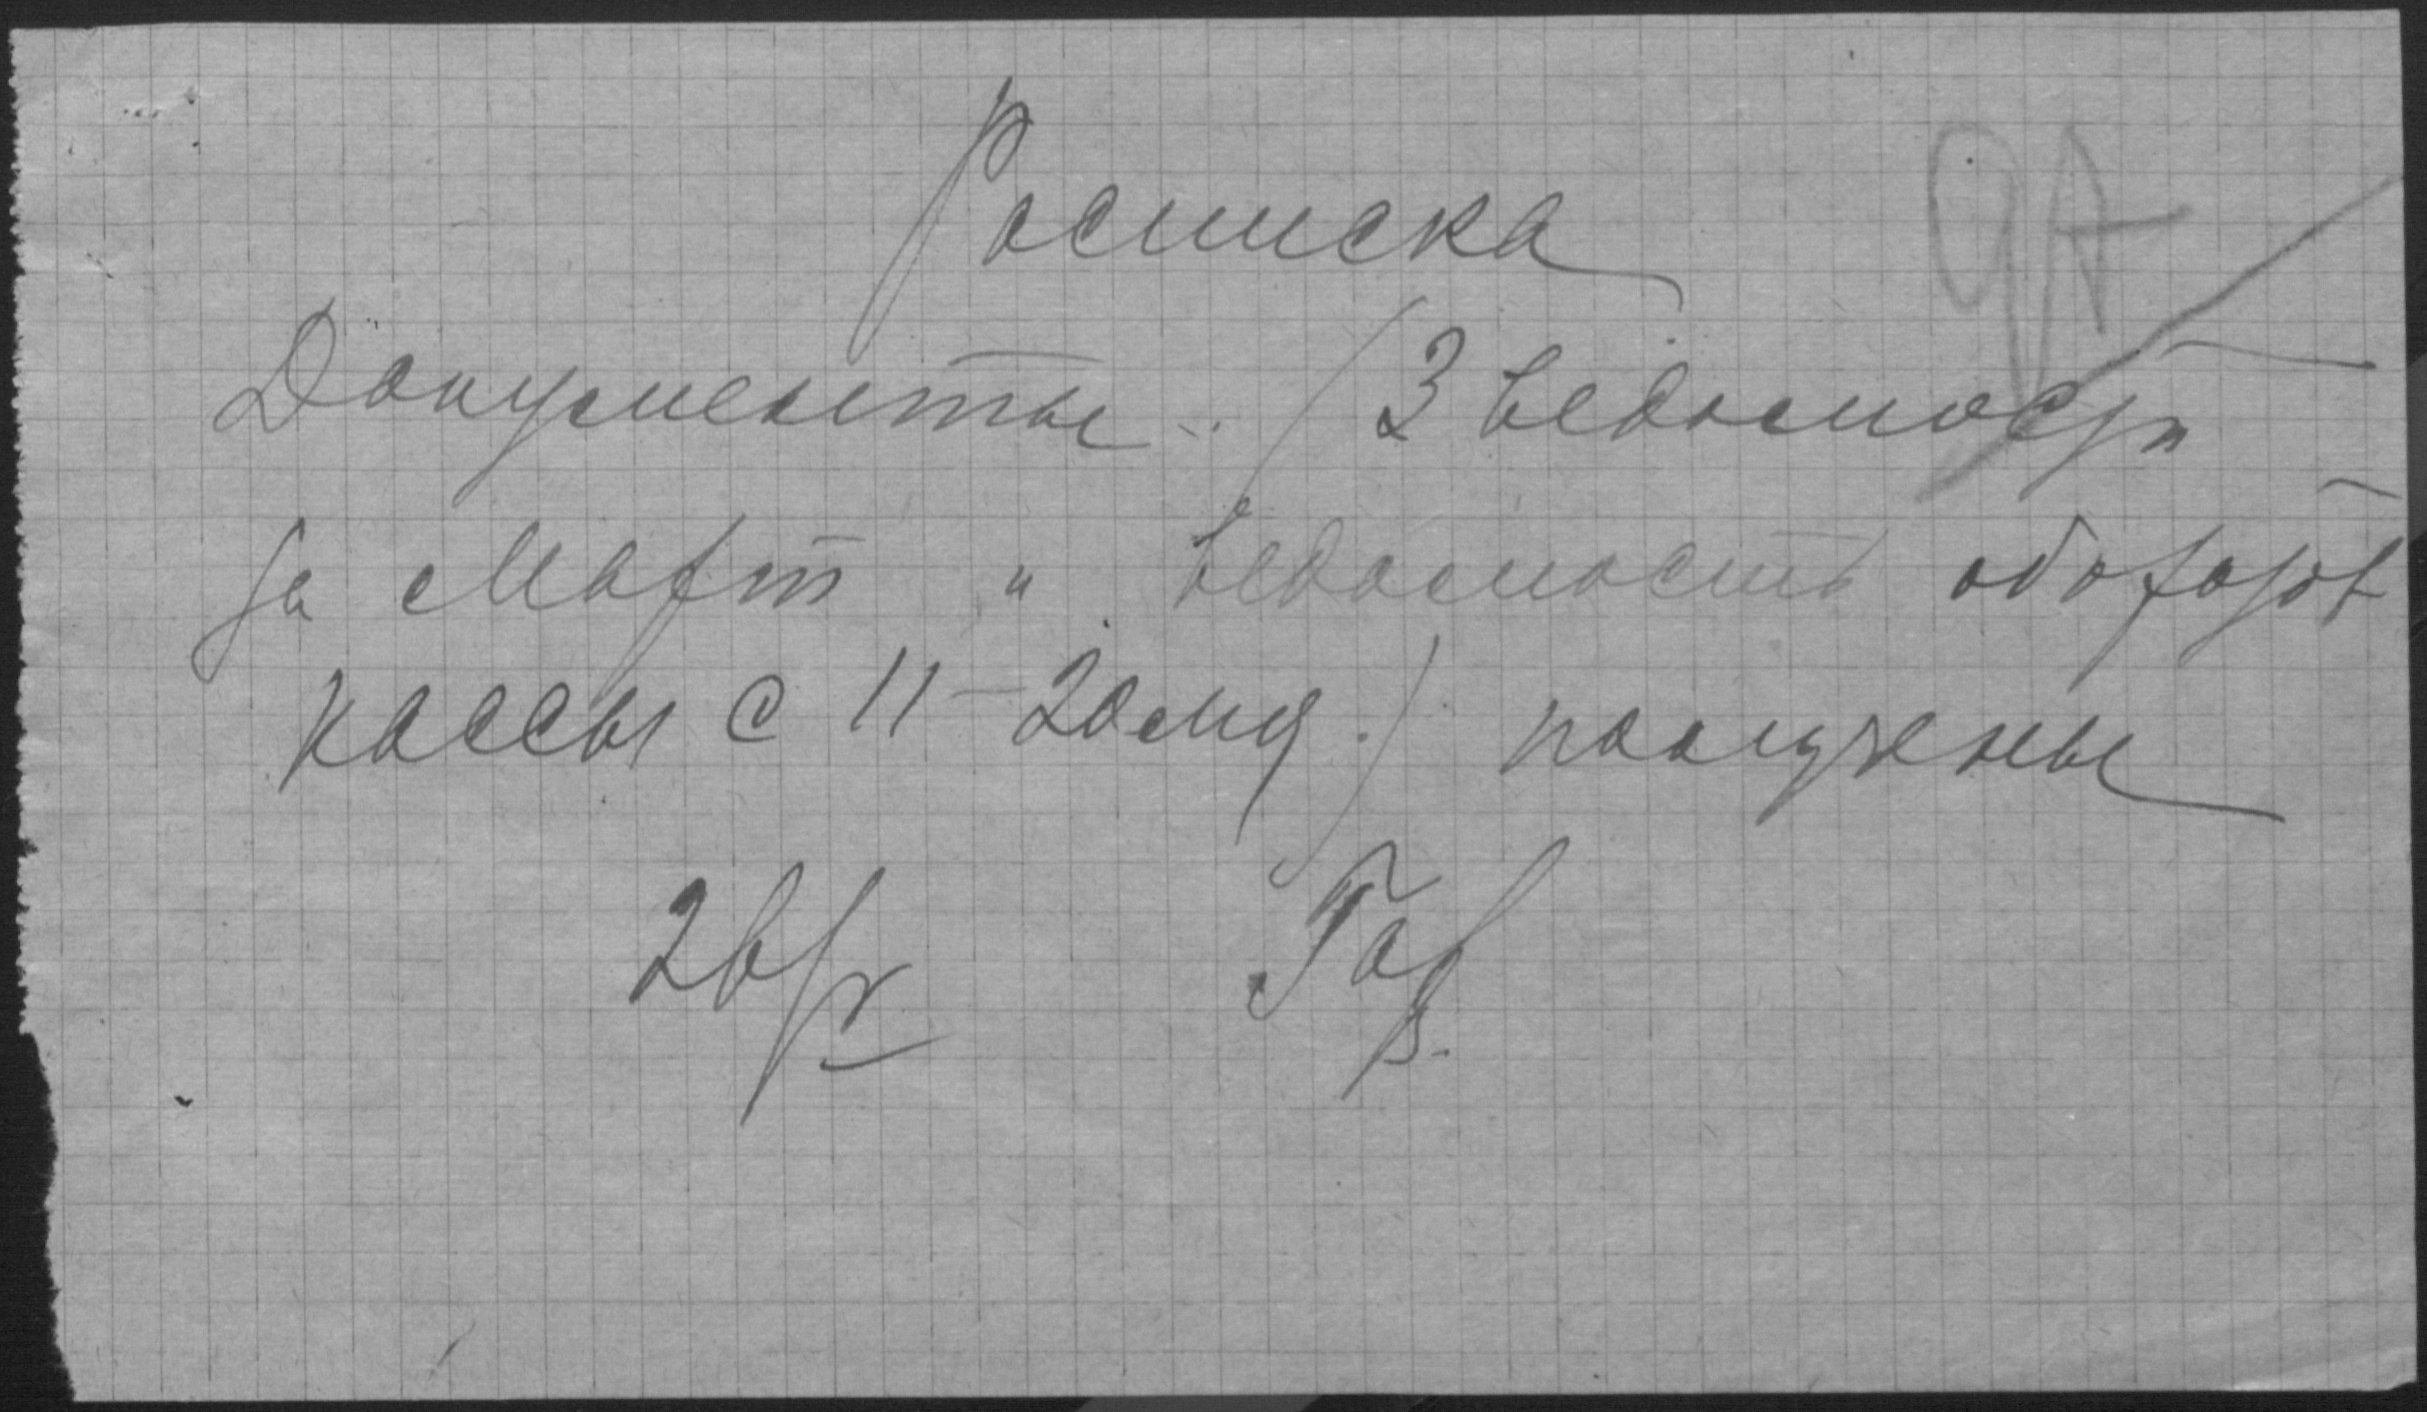 Росписка
Документы (3 ведомости
за Март и ведомость оборотов
кассы с 11–20 мц.) получены
Гар